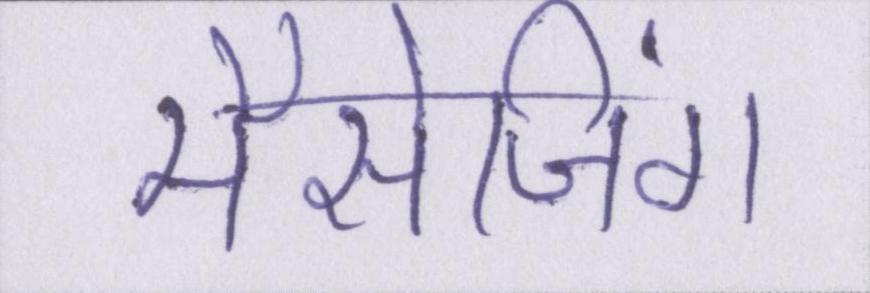 मैसेजिंग